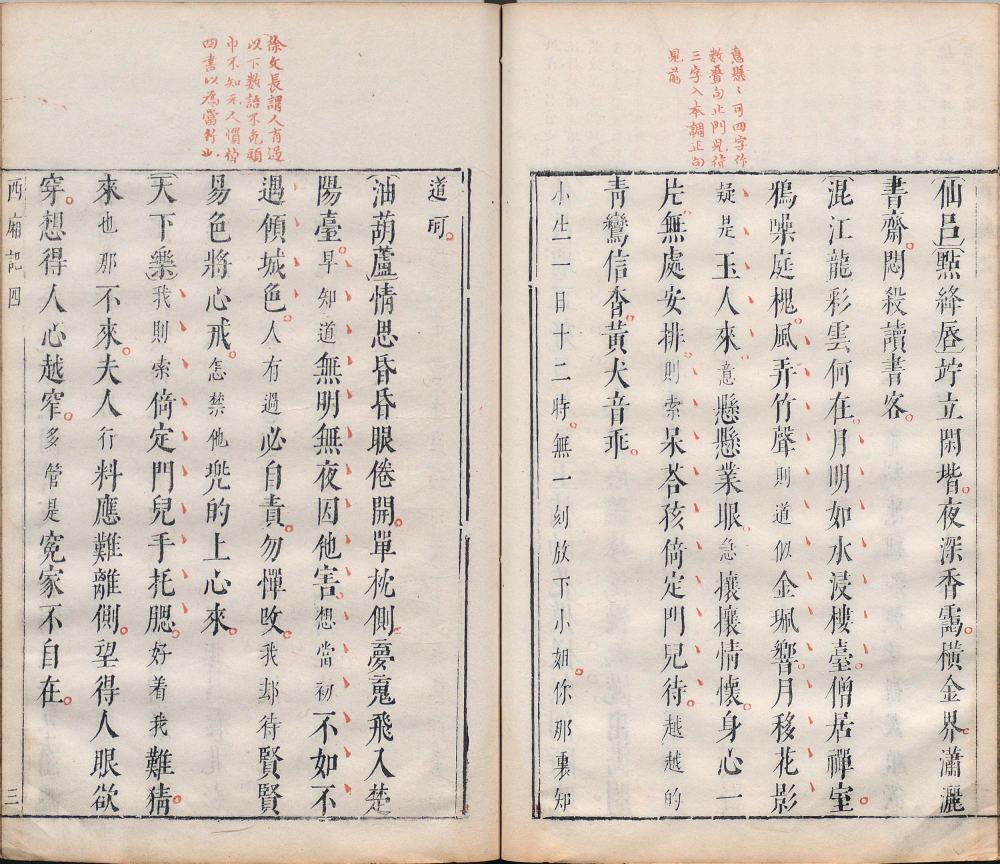 意懸〻可四字作
數疊句止門兒待
三字入本調正句
見前
〔仙呂〕〔點絳唇〕竚立閑堦。夜深香靄。橫金界。瀟灑
書齋。悶殺讀書客。
〔混江龍〕彩雲何在。月明如水浸樓臺。僧居禪室。
鴉噪庭槐。風弄竹聲則道似金珮響。月移花影
疑是玉人來。意懸懸業眼。急攘攘情懷。身心一
片。無處安排。則索呆荅孩倚定門兒待。越越的
青鸞信杳。黃犬音乖。
小生一日十二時。無一刻放下小姐。你那裏知
徐文長謂人有過
以下數語不免頭
巾不知元人慣掉
四書以爲當行也
道呵。
〔油葫蘆〕情思昏昏眼倦開。單枕側。夢䰟飛入楚
陽臺。早知道無明無夜因他害。想當初不如不
遇傾城色。人有過必自責。勿憚改。我却待賢賢
易色將心戒。怎禁他兠的上心來。
〔天下樂〕我則索倚定門兒手托腮。好着我難猜。
來也那不來。夫人行料應難離側。望得人眼欲
穿。想得人心越窄。多管是寃家不自在。
西廂記四
三